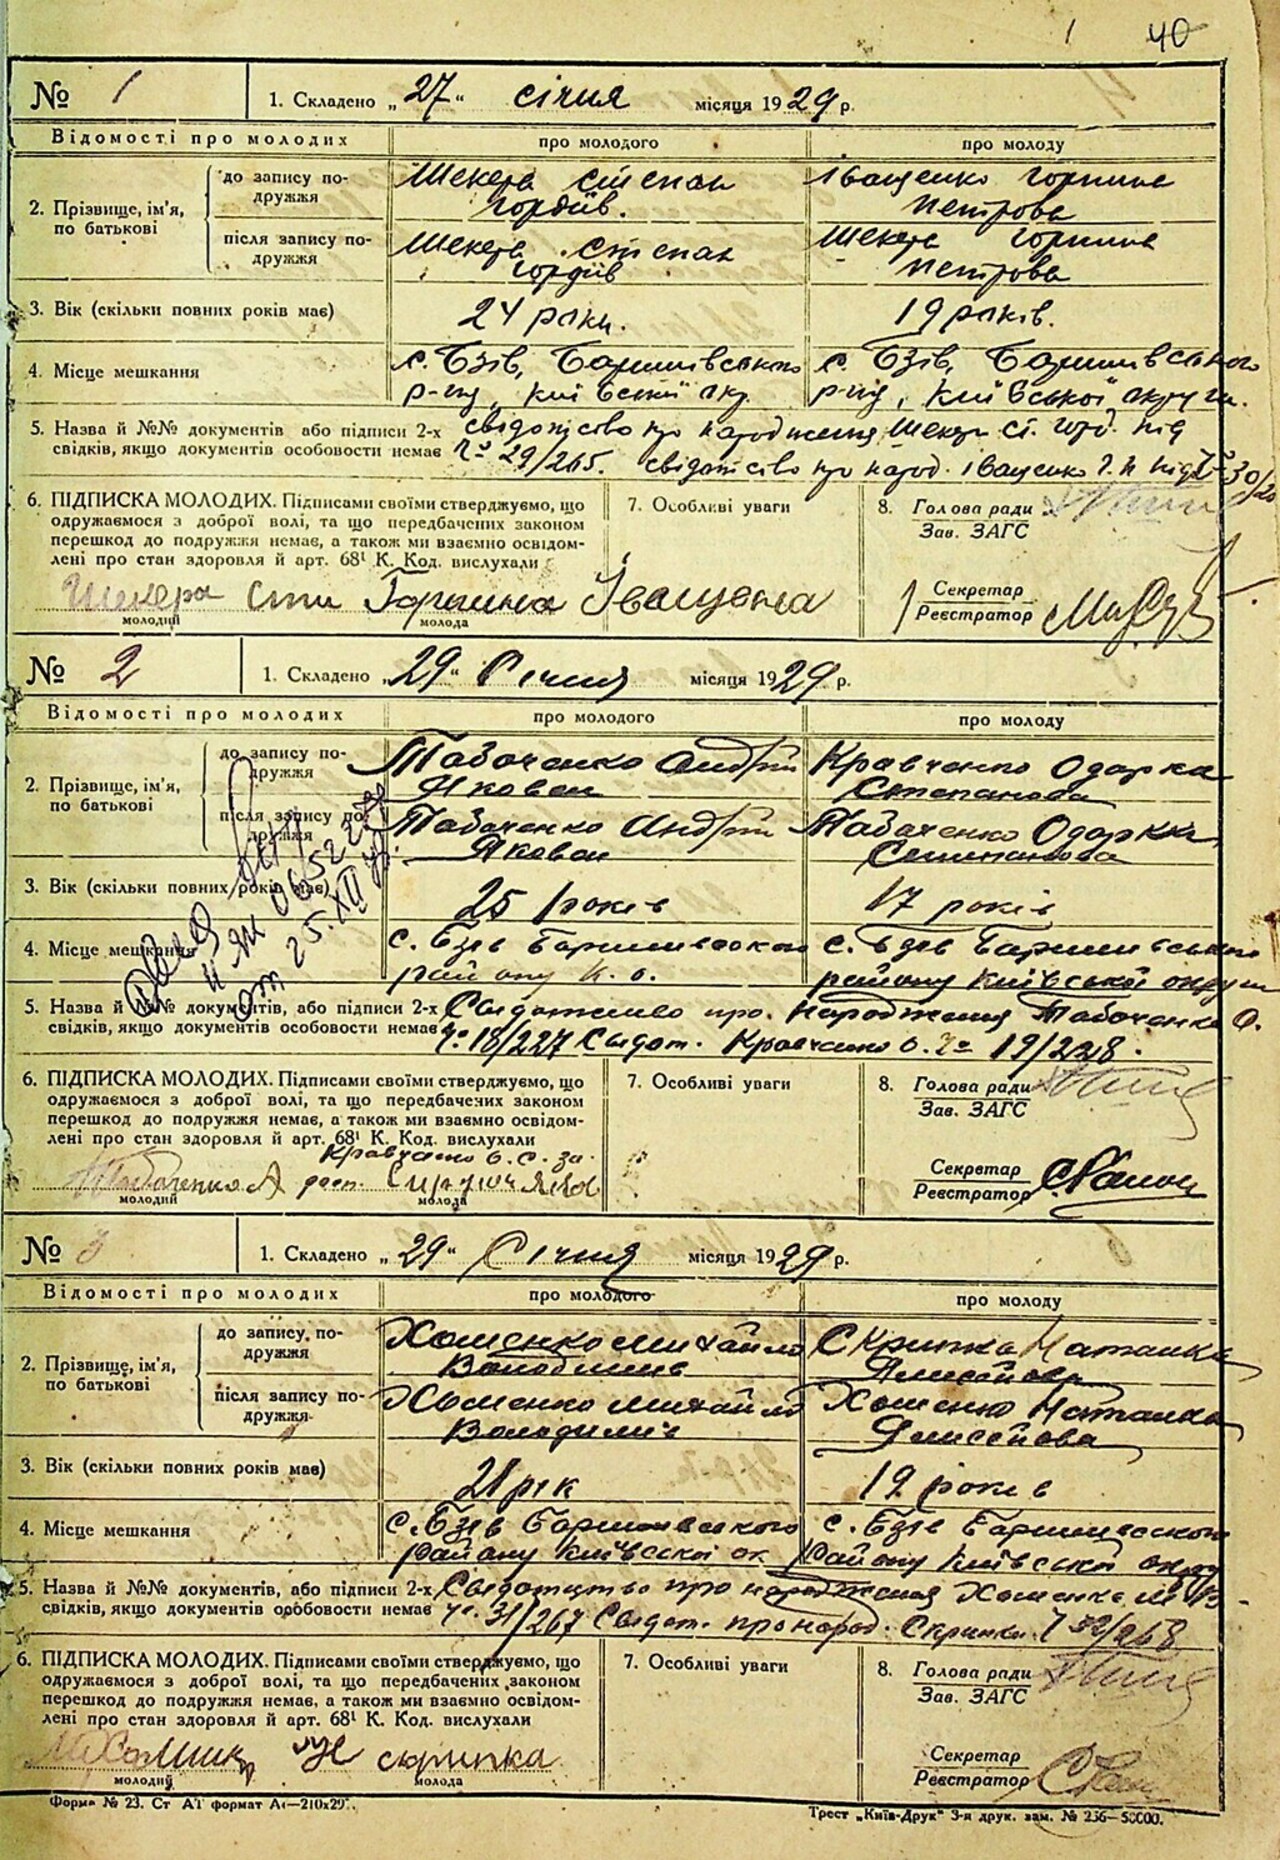 1 40
№ 1 1. Складено „27“ січня місяця 1929 р.
Відомості про молодих про молодого про молоду
2. Прізвище, ім'я, по батькові
до запису по-дружжя Шекера Степан Іващенко Горпина
Гордіїв. Петрова
після запису по-дружжя Шекера Степан Шекера Горпина
Гордіїв Петрова
3. Вік (скільки повних років має) 24 роки. 19 років.
4. Місце мешкання с. Бзів, Баришівського с. Бзів, Баришівського
р-ну, Київської окр. р-ну, Київської округи.
5. Назва й №№ документів або підписи 2-х свідоцтво про народження Шекери Ст. Горд. під
свідків, якщо документів особовости немає № 29/265. свідоцтво про народ. Іващенко Г. П. під № 30/
6. ПІДПИСКА МОЛОДИХ. Підписами своїми стверджуємо, що 7. Особливі уваги 8. Голова ради
одружаємося з доброї волі, та що передбачених законом Зав. ЗАГС
перешкод до подружжя немає, а також ми взаємно освідом-
лені про стан здоровля й арт. 68¹ К. Код. вислухали
Шекера Горпина Іващенко Секретар
молодий молода Реєстратор
№ 2 1. Складено „29“ Січня місяця 1929 р.
Відомості про молодих про молодого про молоду
2. Прізвище, ім'я, по батькові
до запису по-дружжя Табаченко Андрій Кравченко Одарка
Яковен Степанова
після запису по-дружжя Табаченко Андрій Табаченко Одарка
Яковен Степанова
3. Вік (скільки повних років має) 25 років 17 років
4. Місце мешкання с. Бзів Баришивського с. Бзів Баришивського
району К. о. району Київської округи
25.XII
5. Назва й №№ документів, або підписи 2-х Свідоцтво про народження Табаченко
свідків, якщо документів особовости немає № 18/227 Свідот. Кравченко О. № 19/228.
6. ПІДПИСКА МОЛОДИХ. Підписами своїми стверджуємо, що 7. Особливі уваги 8. Голова ради
одружаємося з доброї волі, та що передбачених законом Зав. ЗАГС
перешкод до подружжя немає, а також ми взаємно освідом-
лені про стан здоровля й арт. 68¹ К. Код. вислухали
Кравченко О. С. за
Табаченко А расп. Секретар
молодий молода Реєстратор
№ 3 1. Складено „29“ Січня місяця 1929 р.
Відомості про молодих про молодого про молоду
2. Прізвище, ім'я, по батькові
до запису, по-дружжя Хоменко Михайло Скрипка Наталка
Володимів
після запису по-дружжя Хоменко Михайло Хоменко Наталка
Володимів
3. Вік (скільки повних років має) 21 рік 19 років
4. Місце мешкання с. Бзів Баришівського с. Бзів Баришивського
району Київської ок району Київської округи
5. Назва й №№ документів, або підписи 2-х Свідотцтво про народження Хоменка М В
свідків, якщо документів особовости немає № 31/267 Свідот. про народ. Скрипки № 32/268
6. ПІДПИСКА МОЛОДИХ. Підписами своїми стверджуємо, що 7. Особливі уваги 8. Голова ради
одружаємося з доброї волі, та що передбачених законом Зав. ЗАГС
перешкод до подружжя немає, а також ми взаємно освідом-
лені про стан здоровля й арт. 68¹ К. Код. вислухали
скрипка Секретар
молодий молода Реєстратор
Форма № 23. Ст А1 формат А4—210x297. Трест „Київ-Друк“ 3-я друк. зам. № 256—50000.